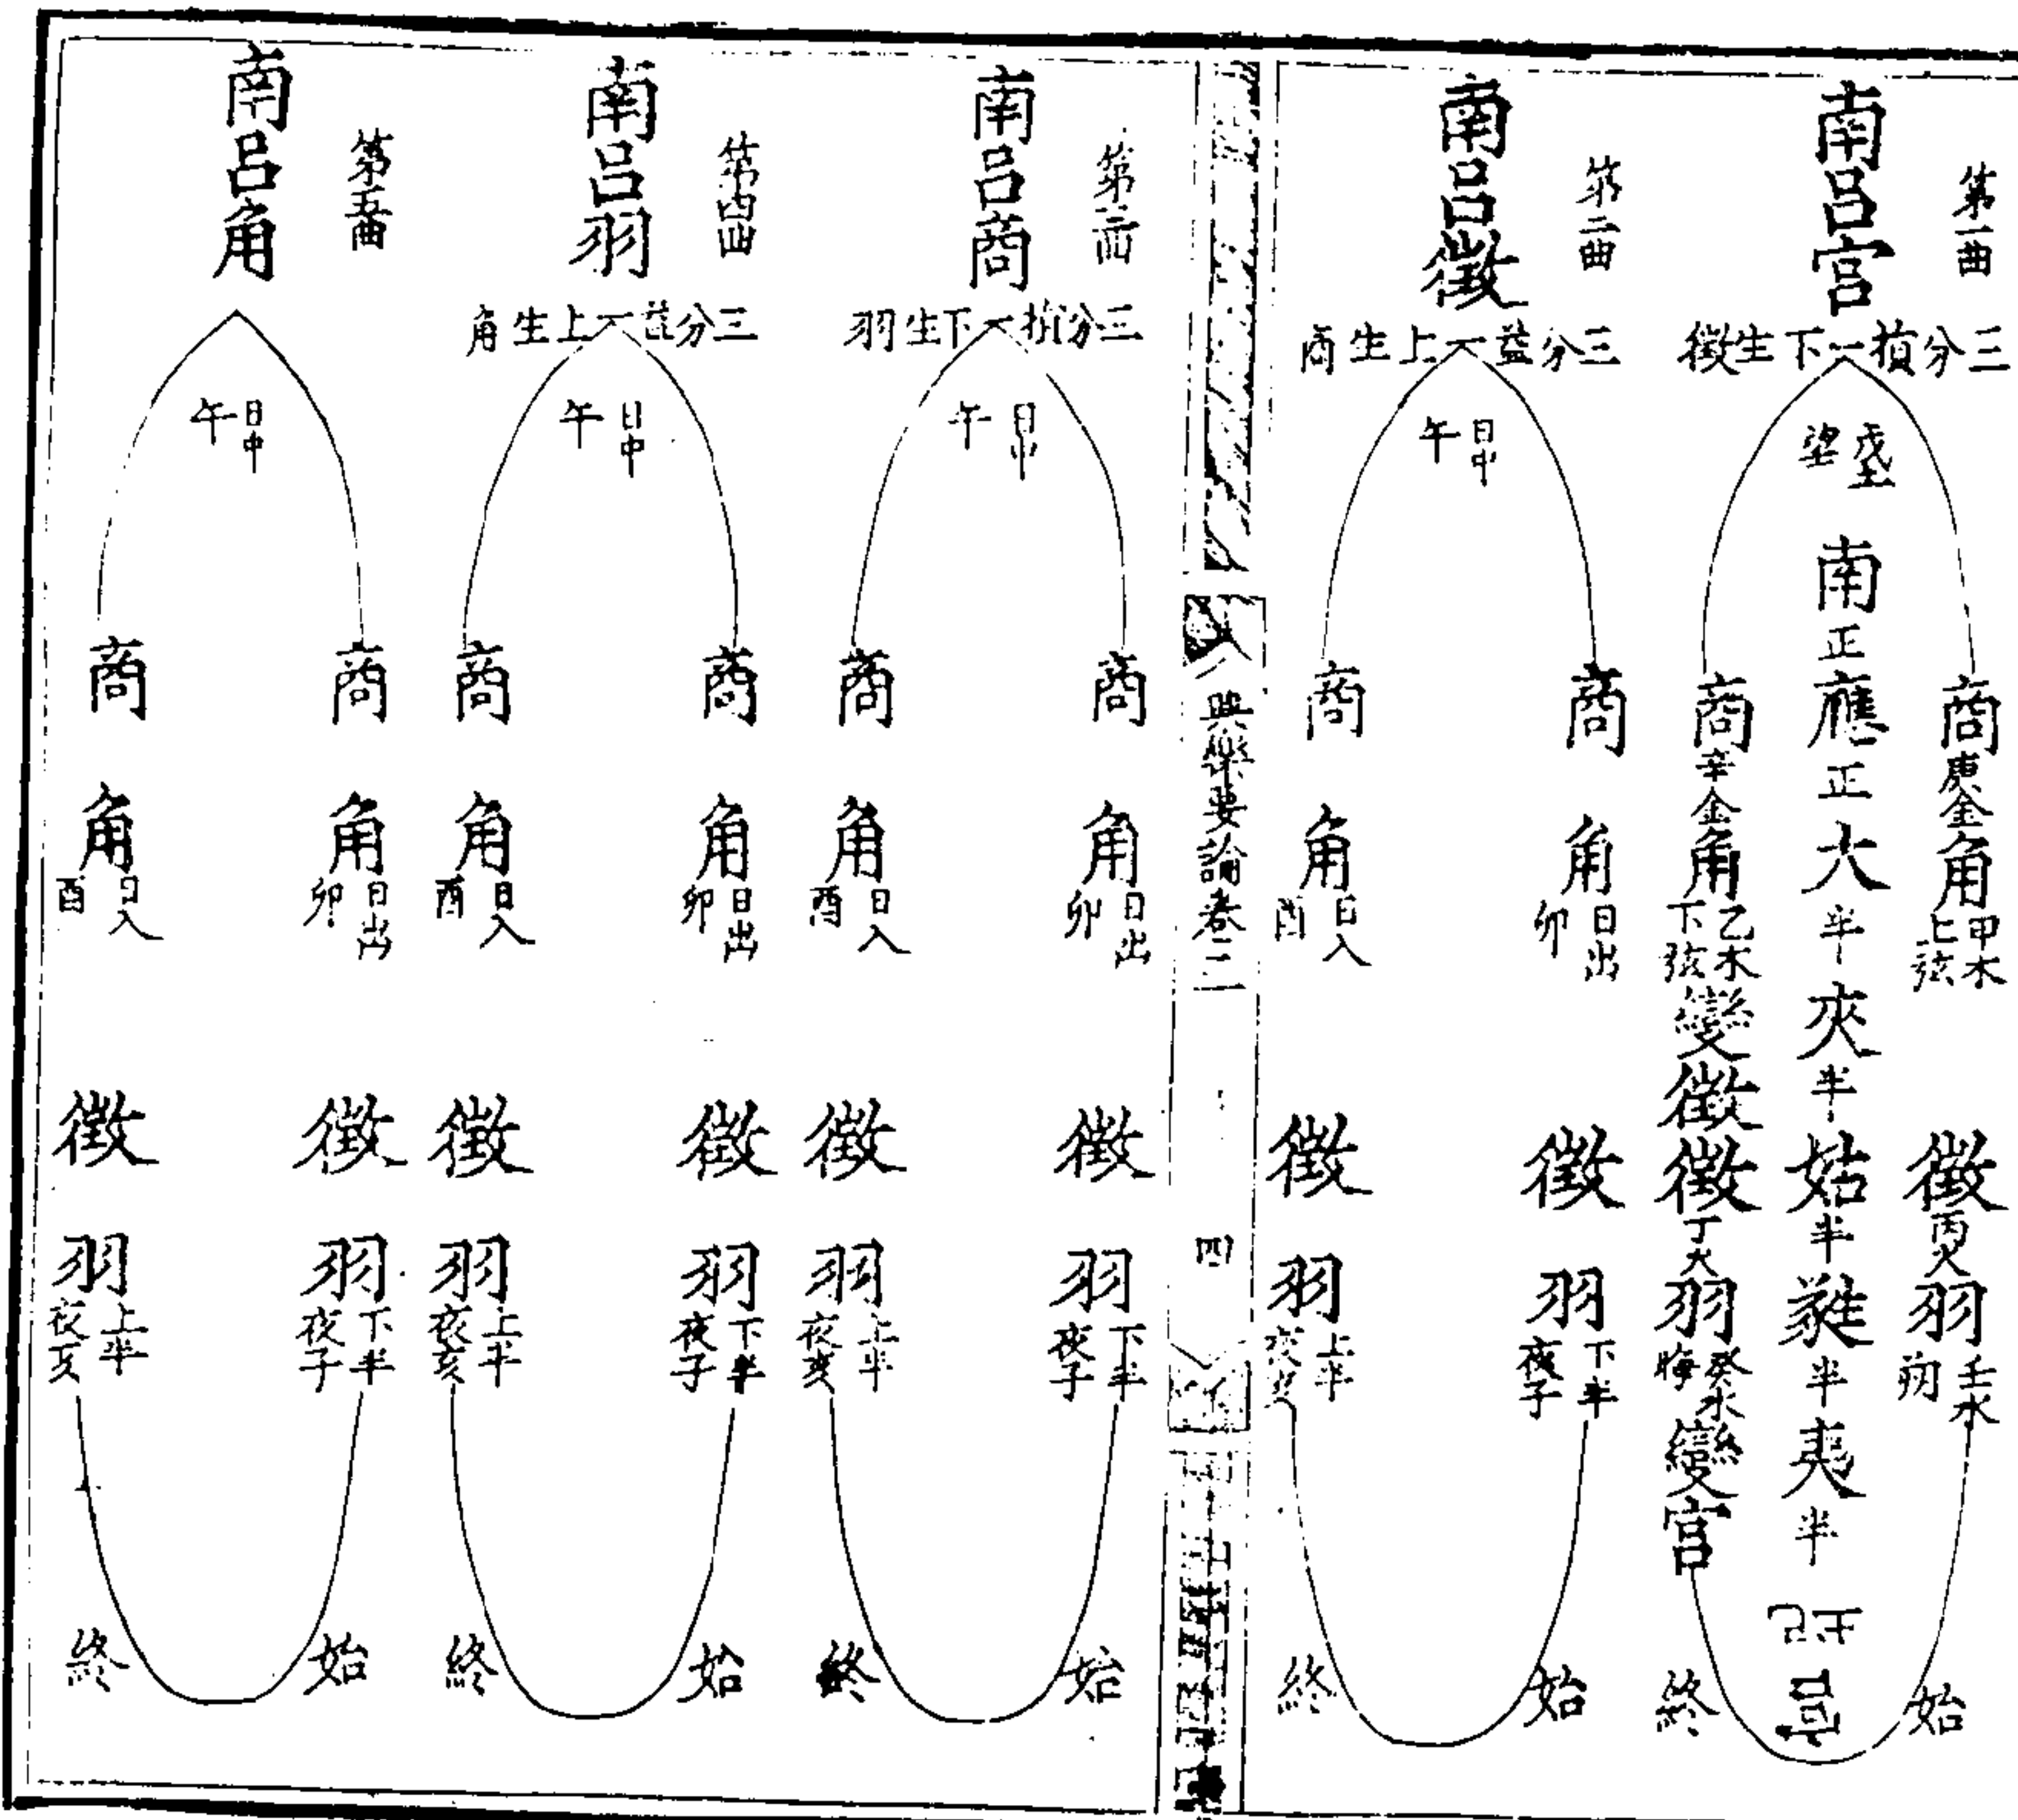 第一曲
南呂宮
三分損一下生徵
戊土
望
始
商庚金角甲木上弦
徵丙火羽壬水朔
南正應正大半夾半姑半蕤半夷半
商辛金角乙木下弦變徵徵丁火羽癸水晦變宮
終
第二曲
南呂徵
三分益一上生商
日中
午
商
角日出卯
徵
羽下半夜子
始
商
角日入酉
徵
羽上半夜亥
終
興樂要論卷三
四
第三曲
南呂商
三分損一下生羽
日中
午
商
角日出卯
徵
羽下半夜子
始
商
角日入酉
徵
羽上半夜亥
終
第四曲
南呂羽
三分益一上生角
日中
午
商
角日出卯
徵
羽下半夜子
始
商
角日入酉
徵
羽上半夜亥
終
第五曲
南呂角
日中
午
商
角日出卯
徵
羽下半夜子
始
商
角日入酉
徵
羽上半夜亥
終